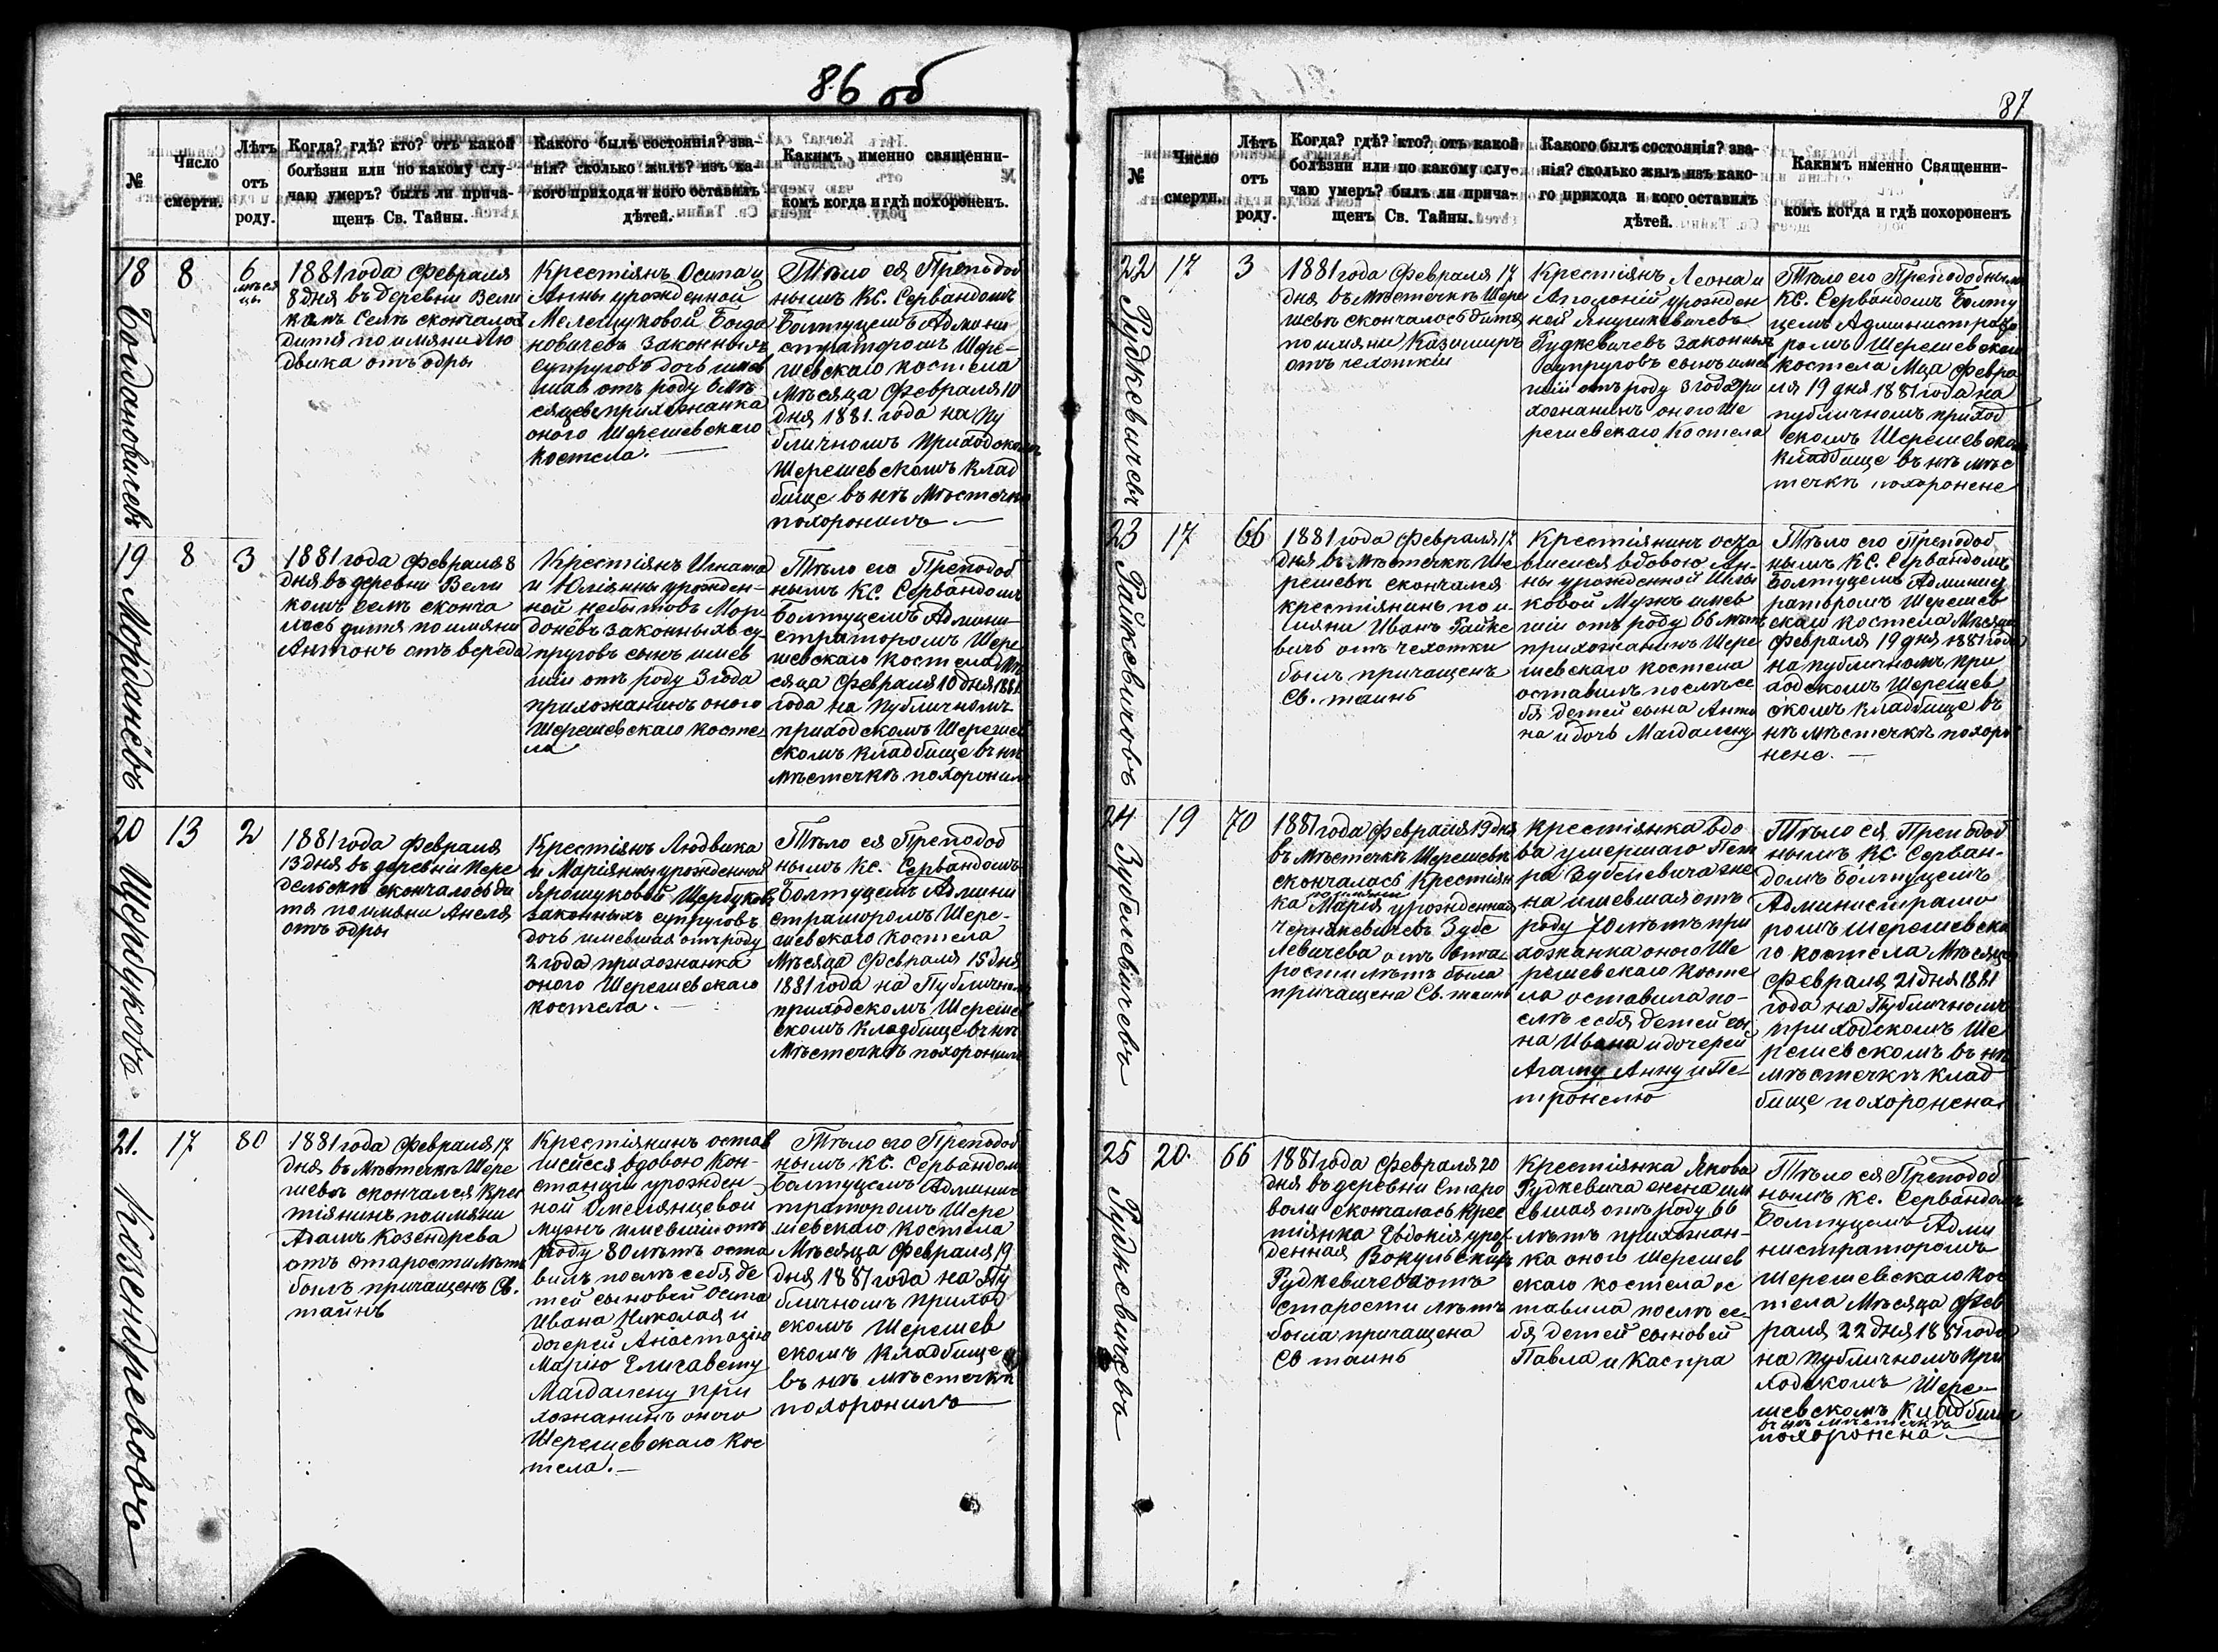 86 об
№
Число
смерти.
Лѣтъ
отъ
роду.
Когда? гдѣ? кто? отъ какой
болѣзни или по какому слу-
чаю умеръ? былъ ли прича-
щенъ Св. Тайны.
Какого былъ состоянія? зва-
нія? сколько жилъ? изъ ка-
кого прихода и кого оставилъ
дѣтей.
Какимъ именно священни-
комъ когда и гдѣ похороненъ.
18
Богдановичевъ
8
6
мѣся
цы
1881 года Февраля
8 дня въ деревни Вели
комъ Селѣ скончалось
дитя по имяни Лю
двика отъ одры
Крестіянъ Осипа и
Анны урожденной
Мелешуковой Богда
новичевъ законныхъ
супруговъ дочь имев
шая отъ роду 6 мѣ
сяцевъ прихожанка
оного Шерешевскаго
костела.
Тѣло ея Преподоб
нымъ КС. Сервандомъ
Болтуцемъ Админи
страторомъ Шере-
шевскаго костела
Мѣсяца Февраля 10
дня 1881. года на пу
бличномъ приходскомъ
Шерешевскомъ клад
бище въ нѣ Мѣстечкѣ
похоронилъ
19
Морданёвъ
8
3
1881 года Февраля 8
дня въ деревни Вели
комъ селѣ сконча
лось дитя по имяни
Антонъ отъ вереда
Крестіянъ Игната
и Юліянны урожден-
ной небытовъ Мор
донёвъ законныхъ су
пруговъ сынъ имев
шіи отъ роду 3 года
прихожанинъ оного
Шерешевскаго косте
ла
Тѣло его Преподоб
нымъ КС. Сервандомъ
Болтуцемъ Админи-
страторомъ Шере
шевскаго костела Мѣ
сяца Февраля 10 дня 1881
года на публичномъ
приходскомъ Шерешев
скомъ кладбище въ нѣ
мѣстечкѣ похоронилъ
20
Щербуковъ
13
2
1881 года Февраля
13 дня въ деревни Пере
дельскѣ скончалось ди
тя по имяни Анеля
отъ одры
Крестіянъ Людвика
и Маріянны урожденной
Ярошуковой Щербуковъ
законныхъ супруговъ
дочь имевшая отъ роду
2 года прихожанка
оного Шерешевскаго
костела.
Тѣло ея Преподоб
нымъ Кс. Сервандомъ
Болтуцемъ Админи
страторомъ Шере-
шевскаго костела
Мѣсяца Февраля 15 дня
1881 года на Публичномъ
приходскомъ Шереше
скомъ Кладбище въ нѣ
Мѣстечкѣ похоронилъ
21.
Козендревовъ
17
80
1881 года Февраля 17
дня въ Мѣстечкѣ Шере
шевѣ скончался Крес
тіянинъ по имяни
Адамъ Козендрева
отъ старости лѣтъ
былъ причащенъ Св.
тайнъ
Крестіянинъ остав
шейся вдовою Кон-
станціи урожден
ной Омелянцевой
мужъ имевшіи отъ
роду 80 лѣтъ оста
вилъ послѣ себя де
тей сыновей Осипа
Ивана Николая и
дочерей Анастазію
Марію Елисавету
Магдалену при
хожанинъ оного
Шерешевскаго Кос
тела.
Тѣло его Преподоб
нымъ КС. Сервандомъ
Болтуцемъ Админис
траторомъ Шере
шевскаго костела
Мѣсяца Февраля 19
дня 1881 года на Пу
бличномъ приход
скомъ Шерешев
скомъ Кладбище
въ нѣ мѣстечкѣ
похоронилъ
87
№
Число
смерти.
Лѣтъ
отъ
роду.
Когда? гдѣ? кто? отъ какой
болѣзни или по какому слу-
чаю умеръ? былъ ли прича-
щенъ Св. Тайны.
Какого былъ состоянія? зва-
нія? сколько жилъ изъ како-
го прихода и кого оставилъ
дѣтей.
Какимъ именно Священни-
комъ когда и гдѣ похороненъ
22
Рудкевичевъ
17
3
1881 года Февраля 17
дня въ Мѣстечкѣ Шере
шевѣ скончалось дитя
по имяни Казимиръ
отъ чехотки
Крестіянъ Леона и
Аполоніи урожден
ной Янушкевичевъ
Рудкевичевъ законныхъ
супруговъ сынъ имев
шіи отъ роду 3 года при
хожанинъ оного Ше
решевскаго Костела
Тѣло его Преподобнымъ
КС. Сервандомъ Болту
цемъ Администрато
ромъ Шерешевскаго
костела Мца Февра
ля 19 дня 1881 года на
публичномъ приход
скомъ Шерешевском
Кладбище въ нѣ мѣс
течкѣ похоронене
23
Райкевичовъ
17
66
1881 года Февраля 17
дня въ Мѣстечкѣ Ше
решевѣ скончался
крестіянинъ по и-
мяни Иванъ Райке
вичъ отъ чехотки
былъ причащенъ
Св. таинъ
Крестіянинъ оста
вшейся вдовою Ан-
ны урожденной
ковой Мужъ имев
шіи отъ роду 66 лѣтъ
прихожанинъ Шере
шевскаго костела
оставилъ послѣ се
бя детей сына Анто
на и дочь Магдалену
Тѣло его Преподоб
нымъ КС. Сервандомъ
Болтуцемъ Админист
раторомъ Шерешев
скаго костела Мѣсяца
Февраля 19 дня 1881 года
на публичномъ при
ходскомъ Шерешев
скомъ кладбище въ
нѣ мѣстечкѣ похоро
нене.
24
Зубелевичевъ
19
70
1881 года Февраля 19 дня
въ Мѣстечкѣ Шерешевѣ
скончалась Крестіян
по имяни
ка Марія урожденная
Чернякевичевъ Зубе
левичева отъ ста
рости лѣтъ была
причащена Св. таинъ
Крестіянка вдо
ва умершаго Пет
ра Зубелевича же
на имевшая отъ
роду 70 лѣтъ при
хожанка оного Ше
решевскаго косте
ла оставила по-
слѣ себя детей сы
на Ивана и дочерей
Агату Анну и Пе-
тронелю
Тѣло ея Преподоб
нымъ КС. Серван-
домъ Болтуцемъ
Администрато
ромъ Шерешевска
го костела Мѣсяца
Февраля 21 дня 1881
года на Публичномъ
приходскомъ Ше
решевскомъ въ нѣ
мѣстечкѣ клад
бище похоронена
25
Рудкевичевъ
20.
66
1881 года Февраля 20
дня въ деревни Старо
воли скончалась Крес
тіянка Евдокія урож
денная Вокульскихъ
Рудкевичева отъ
старости лѣтъ
была причащена
Св таинъ
Крестіянка Якова
Рудкевича жена им
евшая отъ роду 66
лѣтъ прихожан-
ка оного Шерешев
скаго костела ос
тавила послѣ се-
бя детей сыновей
Павла и Каспра
Тѣло ея Преподоб
нымъ Кс. Сервандомъ
Болтуцемъ Адми
нистраторомъ
Шерешевскаго кос
тела Мѣсяца Фев
раля 22 дня 1881 года
на публичномъ при
ходскомъ Шере-
шевскомъ Кладбище
въ нѣ мѣстечкѣ
похоронена.